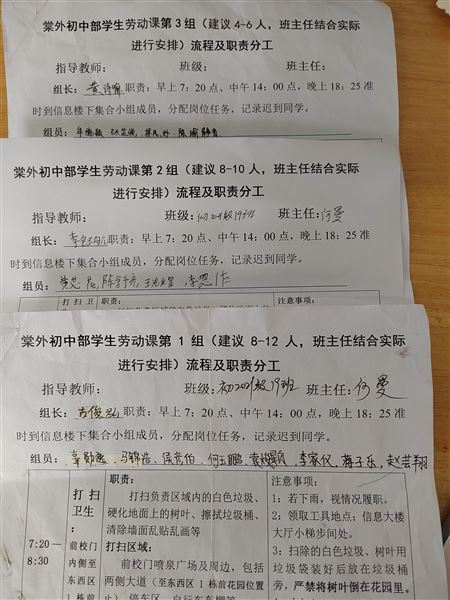 棠外初中部学生劳动课第 3 组（建议 4-6 人，班主任结合实际
进行安排）流程及职责分工
指导教师： 班级： 班主任：
组长： 职责：早上 7：20 点、中午 14：00 点，晚上 18：25 准
时到信息楼下集合小组成员，分配岗位任务，记录迟到同学。
组员：
棠外初中部学生劳动课第 2 组（建议 8-10 人，班主任结合实际
进行安排）流程及职责分工
指导教师： 班级：初2021级19班 班主任：何曼
组长： 职责：早上 7：20 点、中午 14：00 点，晚上 18：25 准
时到信息楼下集合小组成员，分配岗位任务，记录迟到同学。
组员：
打 扫 卫 职责： 注意事项：
棠外初中部学生劳动课第 1 组（建议 8-12 人，班主任结合实际
进行安排）流程及职责分工
指导教师： 班级：初2021级19班 班主任：何曼
组长： 职责：早上 7：20 点、中午 14：00 点，晚上 18：25 准
时到信息楼下集合小组成员，分配岗位任务，记录迟到同学。
组员： 马锦浩、侯彦伯、何玉鹏、李家仪、蒋子乐、赵芸翔
7:20—
8:30
打 扫
卫生
：
前校门
内侧至
东西区
1 栋前
职责：
打扫负责区域内的白色垃圾、
硬化地面上的树叶、擦拭垃圾桶、
清除墙面乱贴乱画等
打扫区域：
前校门喷泉广场及周边，包括
两侧大道（至东西区 1 栋前花园位置
止）、停车区、自行车车棚等
注意事项：
1；若下雨，视情况履职。
2；领取工具地点：信息大楼
大厅小梯步间处。
3；扫除的白色垃圾、树叶用
垃圾袋装好后放在垃圾桶
旁，严禁将树叶倒在花园里。